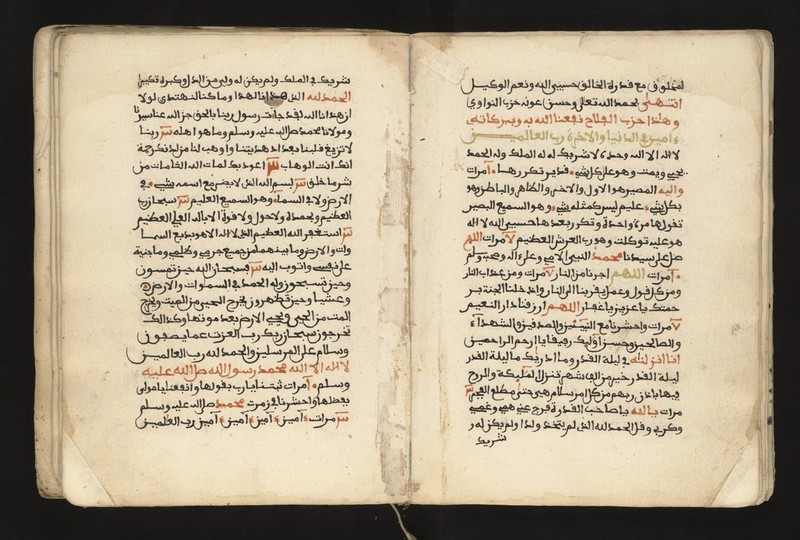 لمخلوق مع قدرة الخالق حسبي الله ونعم الوكيل
انتهى بحمد الله تعلى وحسن عونه حزب النواوي
وهاذا حزب الفلاح نفعنا الله به وببركاته
ءامين في الدنيا والاخرة رب العالمين
لا اله الا الله وحده لا شريك له له الملك وله الحمد
يحيي ويميت وهو على كل شيء قدير تكررها مرات
واليه المصير هو الاول والاخر والظاهر والباطن وهو
بكل شيء عليم ليس كمثله شيء وهو السميع البصير
تقولها مرة واحدة وتكرر بعدها حسبي الله لا اله
هو عليه توكلت وهو رب العرش العظيم ٧ مرات اللهم
صل على سيدنا محمد النبي الامي وعلى ءاله وصحبه وسلم
مرات اللهم اجرنا من النار ٧ مرات ومن عذاب النار
ومن كل قول وعمل يقربنا الى النار وادخلنا الجنة بر
حمتك يا عزيز يا غفار اللهم ارزقنا دار النعيم
٧ مرات واحشرنا مع النبيين والصديقين والشهداء
والصالحين وحسن اوليك رفيقا يا ارحم الراحمين
انا انزلناه في ليلة القدر وما ادريك ما ليلة القدر
ليلة القدر خير من الف شهر تنزل الملايكة والروح
فيها باذن ربهم من كل امر سلام هي حتى مطلع الفجر
مرات يا الله يا صاحب القدرة فرج عني همي وغمي
وكربي وقل الحمد لله الذي لم يتخذ ولدا ولم يكن له
شريك
شريك في الملك ولم يكن له ولي من الذل وكبره تكبيرا
الحمد لله الذي هدانا لهذا وما كنا لنهتدي لولا
ان هدانا الله لقد جاءت رسل ربنا بالحق جزا الله عنا سيدنا
ومولانا محمد صلى الله عليه وسلم وما هو اهله ربنا
لا تزغ قلوبنا بعد اذ هديتنا وهب لنا من لدنك رحمة
انك انت الوهاب اعوذ بكلمات الله التامات من
شر ما خلق بسم الله الذي لا يضر مع اسمه شيء في
الارض ولا في السماء وهو السميع العليم سبحان الله
العظيم وبحمده ولا حول ولا قوة الا بالله العلي العظيم
استغفر الله العظيم الذي لا اله الا هو بديع السما
وات والارض وما بينهما من جميع جرمي وظلمي وما جنيته
على نفسي واتوب اليه فسبحان الله حين تمسون
وحين تصبحون وله الحمد في السموات والارض
وعشيا وحين تظهرون يخرج الحي من الميت ويخرج
الميت من الحي ويحيي الارض بعد موتها وكذالك
تخرجون سبحان ربك رب العزت عما يصفون
وسلام على المرسلين والحمد لله رب العالمين
لا اله الا الله محمد رسول الله صلى الله عليه
وسلم مرات ثبتنا يا رب بقولها وانفعنا يا مولى
بفضلها واحشرنا في زمرت محمد صلى الله عليه وسلم
مرات امين امين امين امين رب العلمين